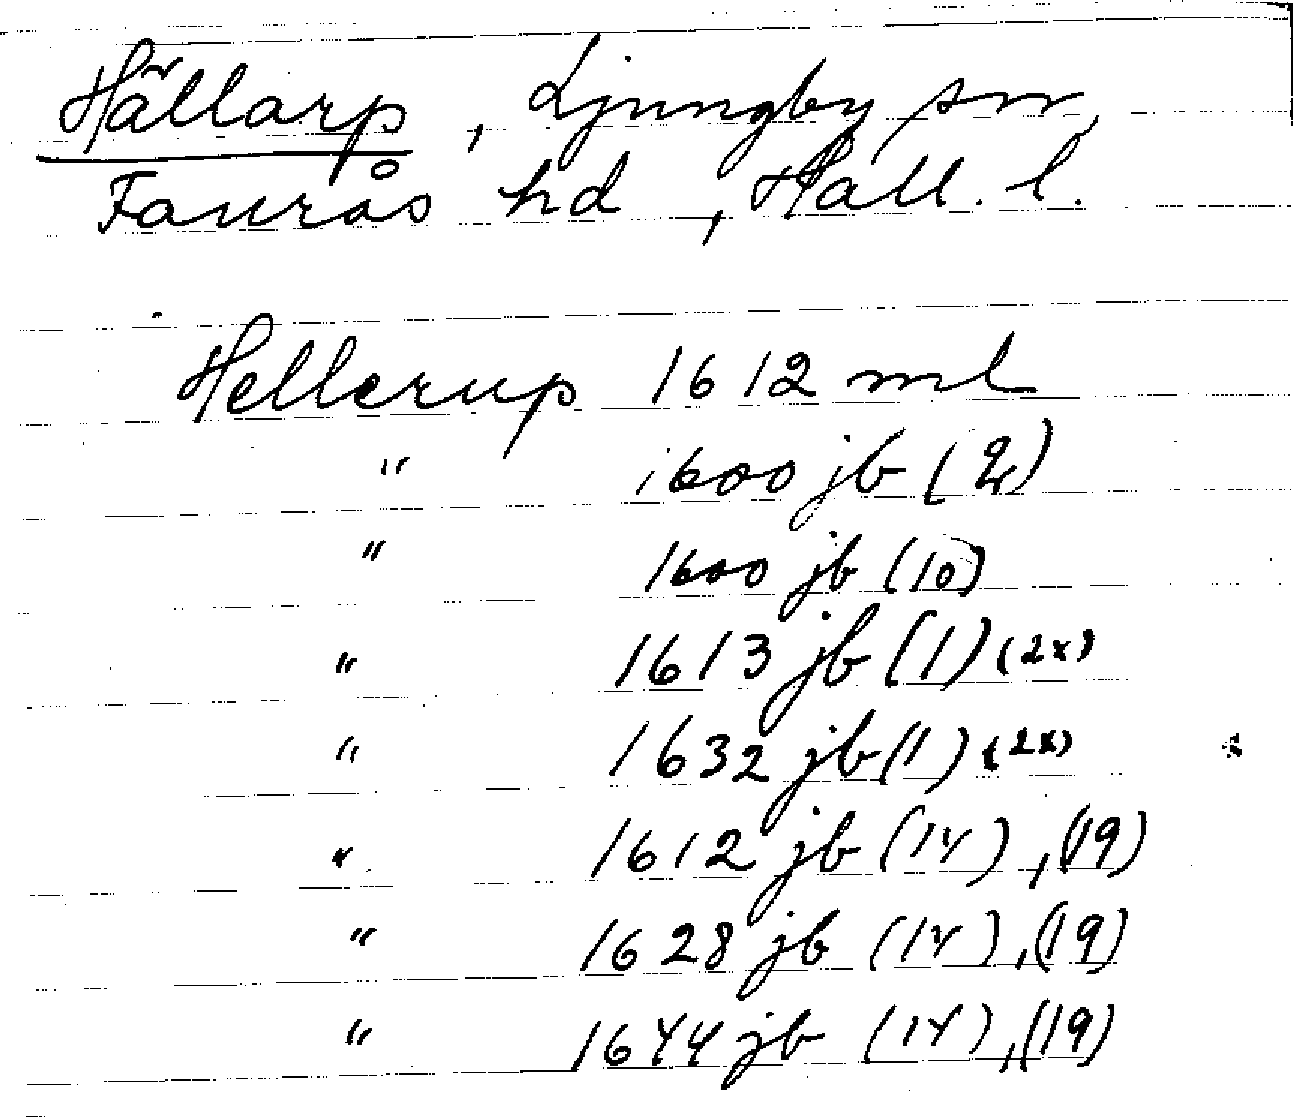 Hällarp, Ljungby sn,
Faurås hd, Hall. l.
Hellerup 1612 ml
" 1600 jb (2)
" 1600 jb (10)
" 1613 jb (1) (2x)
" 1632 jb (1) (2x)
" 1612 jb (14), (19)
" 1628 jb (14), (19)
" 1644 jb (14), (19)